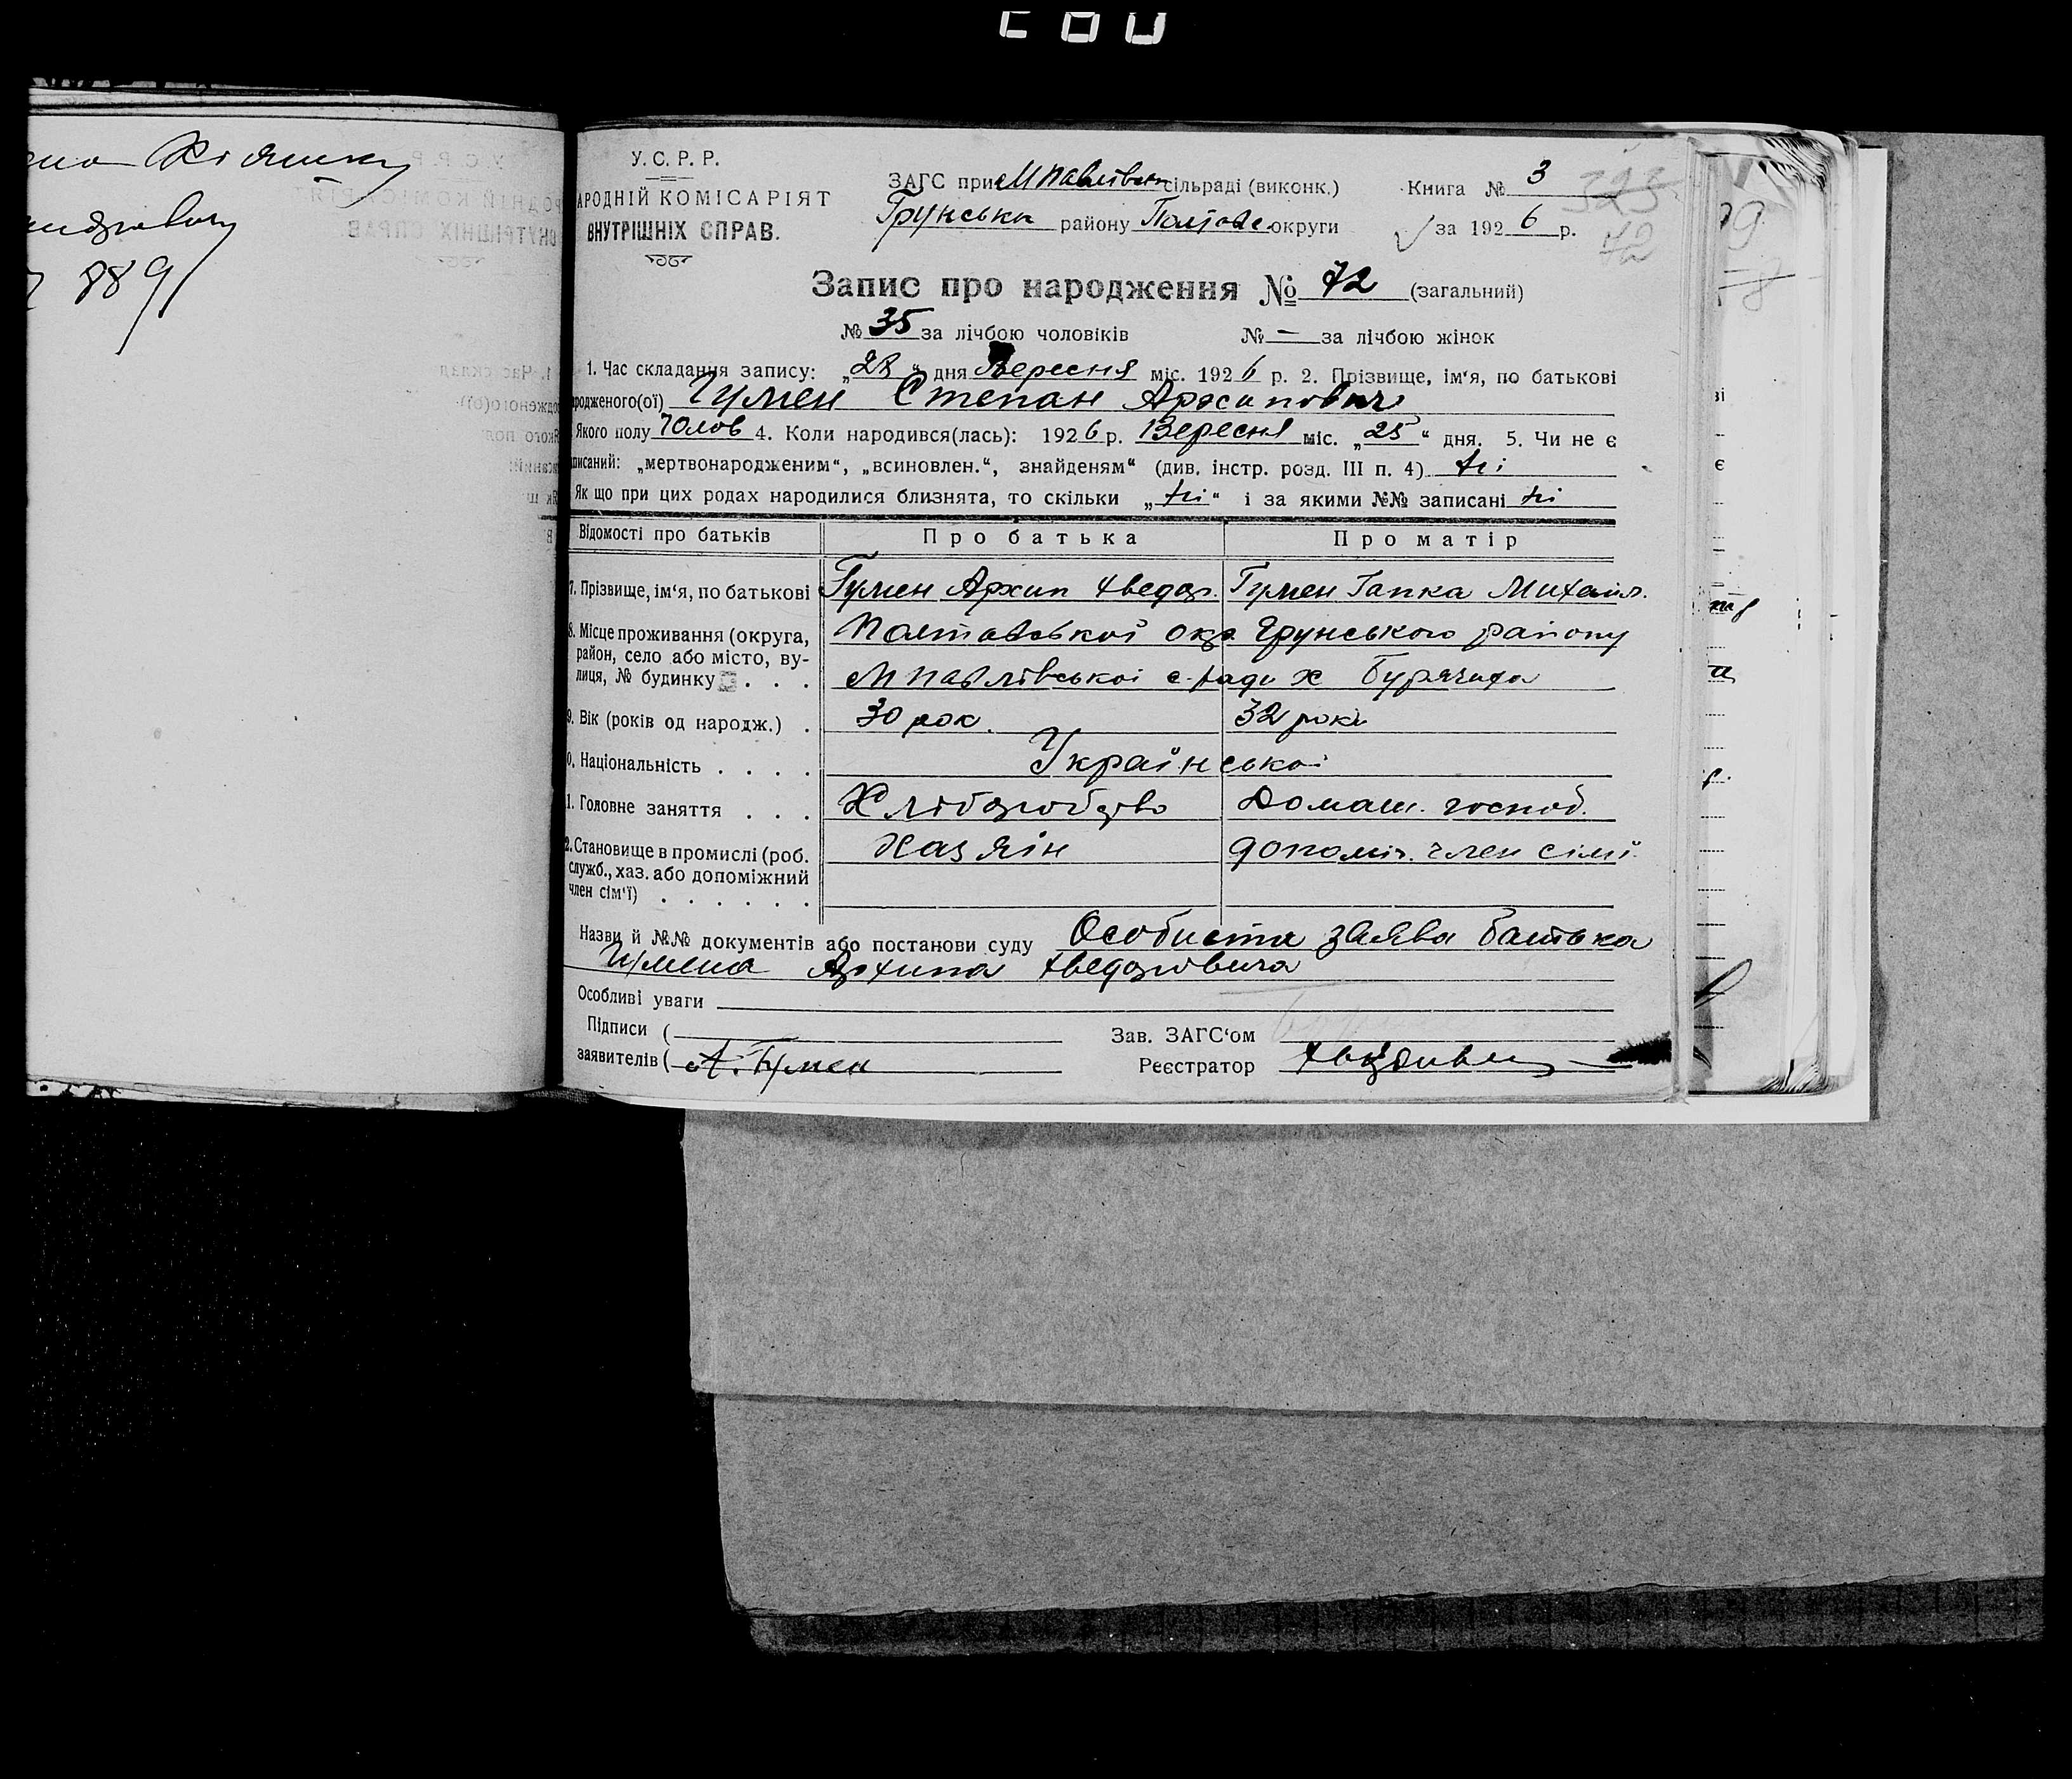 889
У. С. Р. Р.
АРОДНІЙ КОМІСАРІЯТ
ВНУТРІШНІХ СПРАВ.
ЗАГС при МПавлівськ сільраді (виконк.)
Грунськ району Полтавс округи
Книга № 3
за 1926 р.
323
72
Запис про народження № 72 (загальний)
№ 35 за лічбою чоловіків № — за лічбою жінок
1. Час складання запису: „28" дня Вересня міс. 1926 р. 2. Прізвище, ім'я, по батькові
родженого(ої) Гумен Степан Архипович
Якого полу Чолов 4. Коли народився(лась): 1926 р. Вересня міс. „25" дня. 5. Чи не є
писаний: „мертвонародженим", „всиновлен.", знайденям" (див. інстр. розд. III п. 4) ні
Як що при цих родах народилися близнята, то скільки „ні" і за якими №№ записані ні
Відомості про батьків Про батька Про матір
7. Прізвище, ім'я, по батькові Гумен Архип Хведор. Гумен Гапка Михайл.
8. Місце проживання (округа, район, село або місто, ву-
лиця, № будинку . . . Полтавської окр Грунського району
МПавлівської с-ради х Бурячиха
9. Вік (років од народж.) . 30 рок. 32 роки
0. Національність . . . . Української
1. Головне заняття . . . Хліборобство Домаш. господ.
2. Становище в промислі (роб. Хазяїн допоміж. член сімї.
служб., хаз. або допоміжний
член сім'ї) . . . . . .
Назви й №№ документів або постанови суду Особиста заява батька
Гумена Архипа Хведоровича
Особливі уваги
Підписи (
заявителів ( А. Гумен
Зав. ЗАГС'ом
Реєстратор